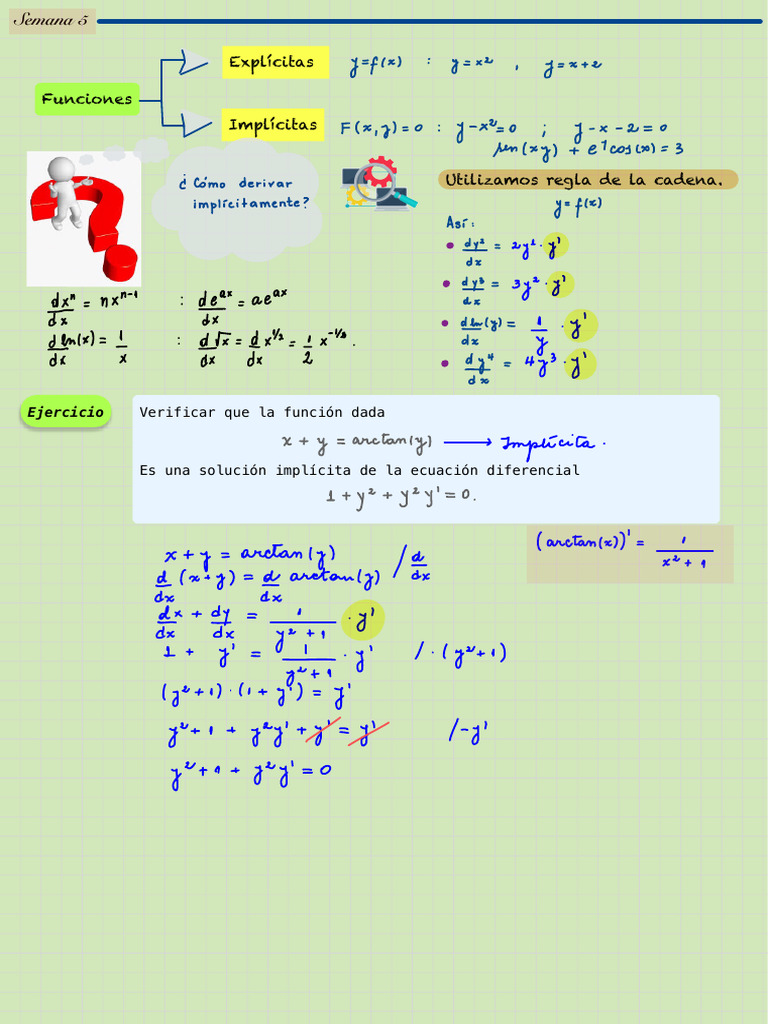 Semana 5
Explícitas y=f(x) : y=x² , y=x+2
Funciones
Implícitas F(x,y)=0 : y-x²=0 ; y-x-2=0
sen(xy) + e^y cos(x) = 3
¿Cómo derivar
implícitamente?
Utilizamos regla de la cadena.
y=f(x)
Así:
• dy²/dx = 2y²·y'
• dy³/dx = 3y²·y'
• dln(y)/dx = 1/y · y'
• dy⁴/dx = 4y³·y'
dxⁿ/dx = nxⁿ⁻¹ : de^ax/dx = ae^ax
dln(x)/dx = 1/x : d√x/dx = d/dx x^1/2 = 1/2 x^-1/2.
Ejercicio
Verificar que la función dada
x + y = arctan(y) ⟶ Implícita.
Es una solución implícita de la ecuación diferencial
1 + y² + y²y' = 0.
(arctan(x))' = 1/(x²+1)
x+y = arctan(y) / d/dx
d/dx (x+y) = d/dx arctan(y)
dx/dx + dy/dx = 1/(y²+1) · y'
1 + y' = 1/(y²+1) · y' /·(y²+1)
(y²+1)·(1+y') = y'
y²+1 + y²y' + y' = y' /-y'
y²+1 + y²y' = 0